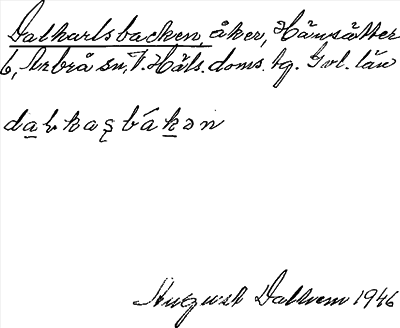 Dalkarlsbacken, åker, Hämsätter
6, Arbrå sn, V. Häls. doms. tg. Gvl. län
dalkasbákən
August Dahlnem 1946